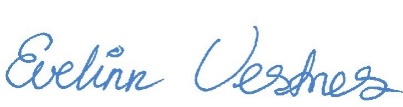 Evelinn Vesnes